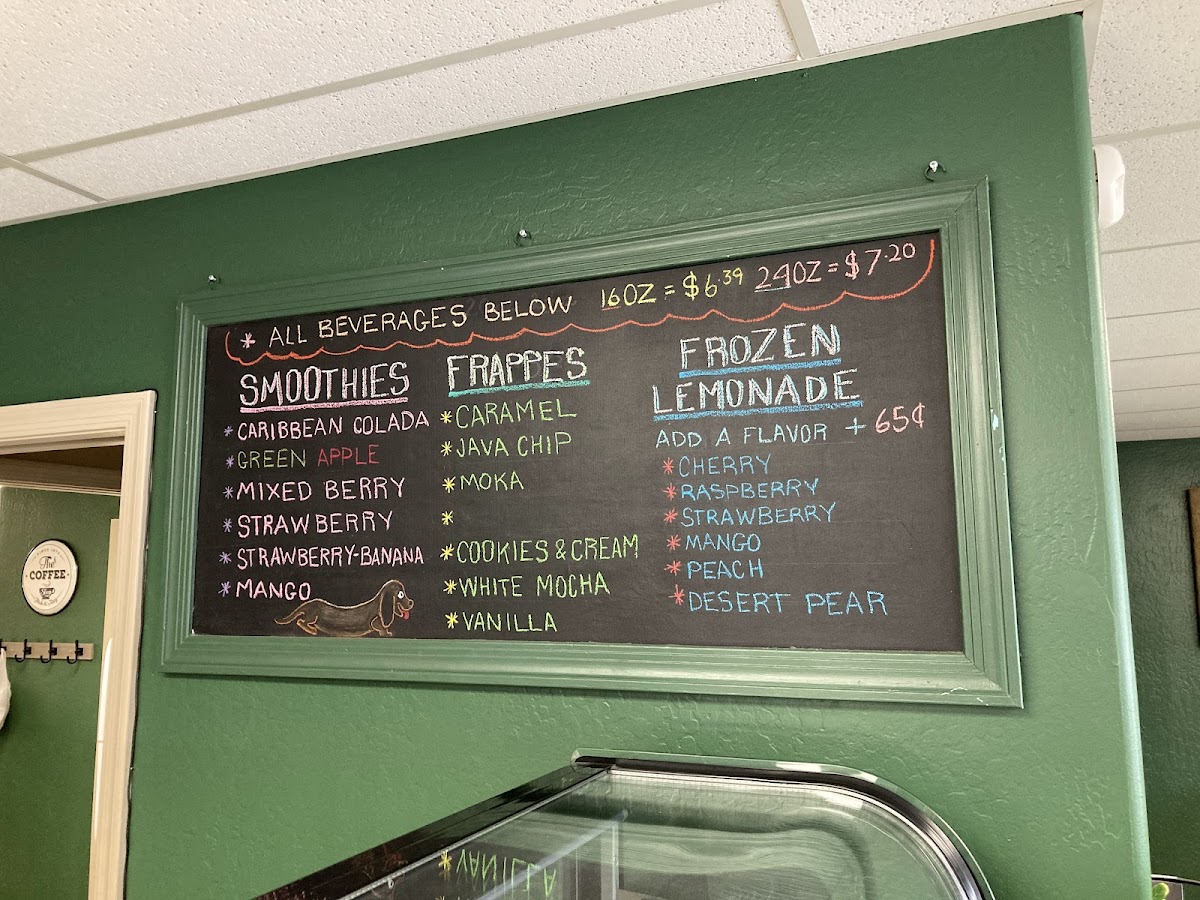 * ALL BEVERAGES BELOW 16OZ = $6.39 24OZ = $7.20
SMOOTHIES
* CARIBBEAN COLADA
* GREEN APPLE
* MIXED BERRY
* STRAWBERRY
* STRAWBERRY-BANANA
* MANGO
FRAPPES
* CARAMEL
* JAVA CHIP
* MOKA
*
* COOKIES & CREAM
* WHITE MOCHA
* VANILLA
FROZEN
LEMONADE
ADD A FLAVOR + 65¢
* CHERRY
* RASPBERRY
* STRAWBERRY
* MANGO
* PEACH
* DESERT PEAR
The
COFFEE
* VANILLA